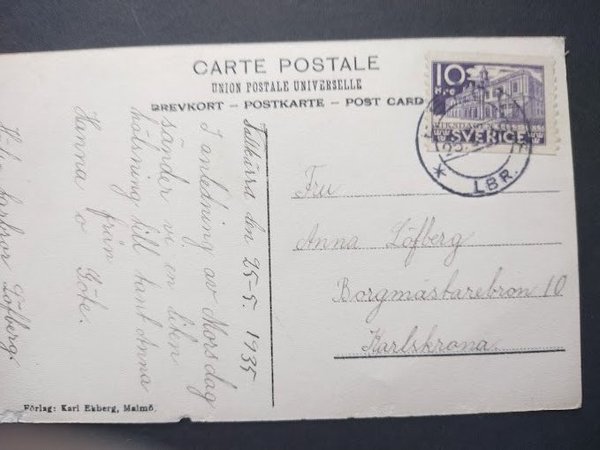 CARTE POSTALE
UNION POSTALE UNIVERSELLE
BREVKORT – POSTKARTE – POST CARD
Tallkärra den 25-5. 1935
I anledning av Mors dag
sänder vi en liten
hälsning till tant Anna
från
Hanna o Göte.
farbror Löfberg.
10
SVERIGE
LBR.
Fru
Anna Löfberg
Borgmästarebron 10
Karlskrona
Förlag: Karl Ekberg, Malmö.